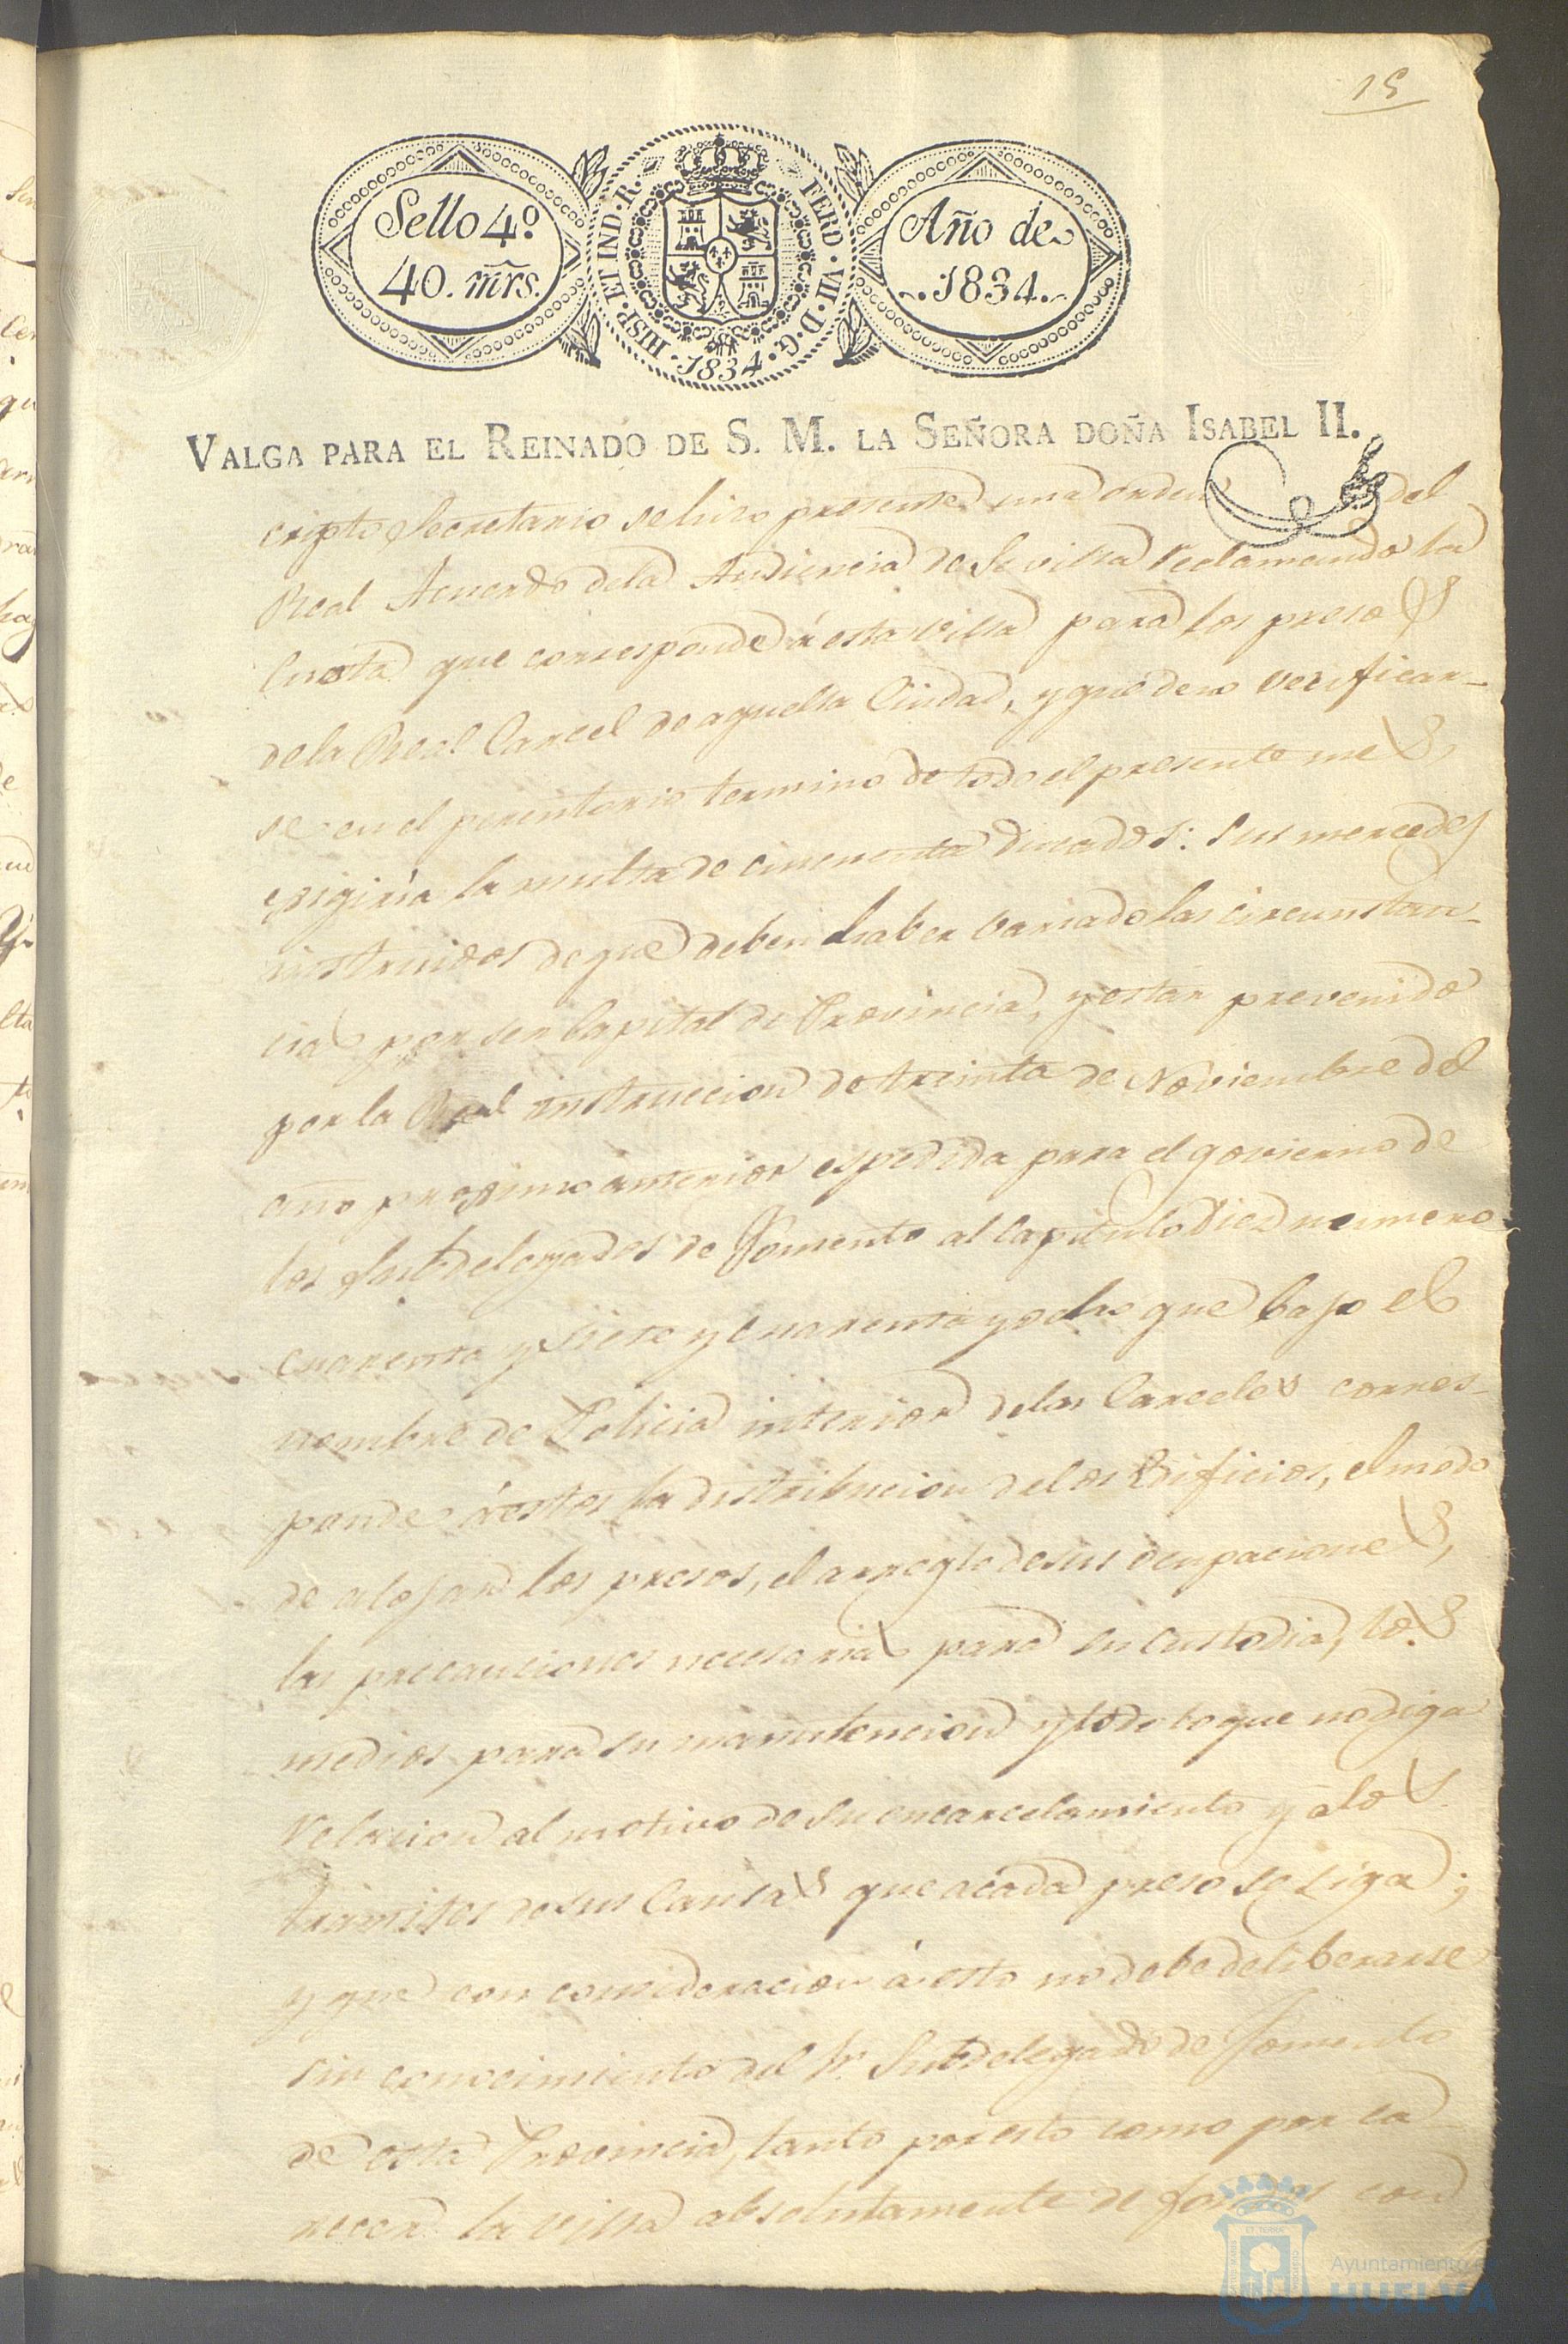 15
Sello 4º
40. mrs.
HISP. ET IND. R.
FERD. VII. D. G.
1834
Año de
1834.
VALGA PARA EL REINADO DE S. M. LA SEÑORA DOÑA ISABEL II.
cripto Secretario se hizo presente una orden del
Real Acuerdo dela Audiencia de Sevilla reclamando la
Cuota que corresponde á esta villa para los presos
dela Real Carcel de aquella Ciudad, y que de no verificar-
se en el perentorio termino de todo el presente mes,
exigiría la multa de cincuenta ducados: sus mercedes
instruidos de que deben haber variado las circunstan-
cias por ser Capital de Provincia, y estar prevenido
por la Real instruccion de treinta de Noviembre del
año proximo anterior espedida para el govierno de
los Subdelegados de Fomento al Capitulo diez numero
cuarenta y siete y Cuarenta y ocho que bajo el
nombre de Policia interior delas Carceles corres-
ponde á estos la distribucion delos Edificios, el modo
de alojar los presos, el arreglo de sus ocupaciones,
las precauciones necesarias para su custodia, los
medios para su manutencion y todo lo que no diga
relacion al motivo de su encarcelamiento y á los
tramites de sus Causas que acada preso se siga;
y que con consideracion á esto no debe deliberarse
sin conocimiento del Sr. Subdelegado de Fomento
de esta Provincia, tanto por esto como por ca
recer la villa absolutamente de fondos con
Ayuntamiento de
HUELVA